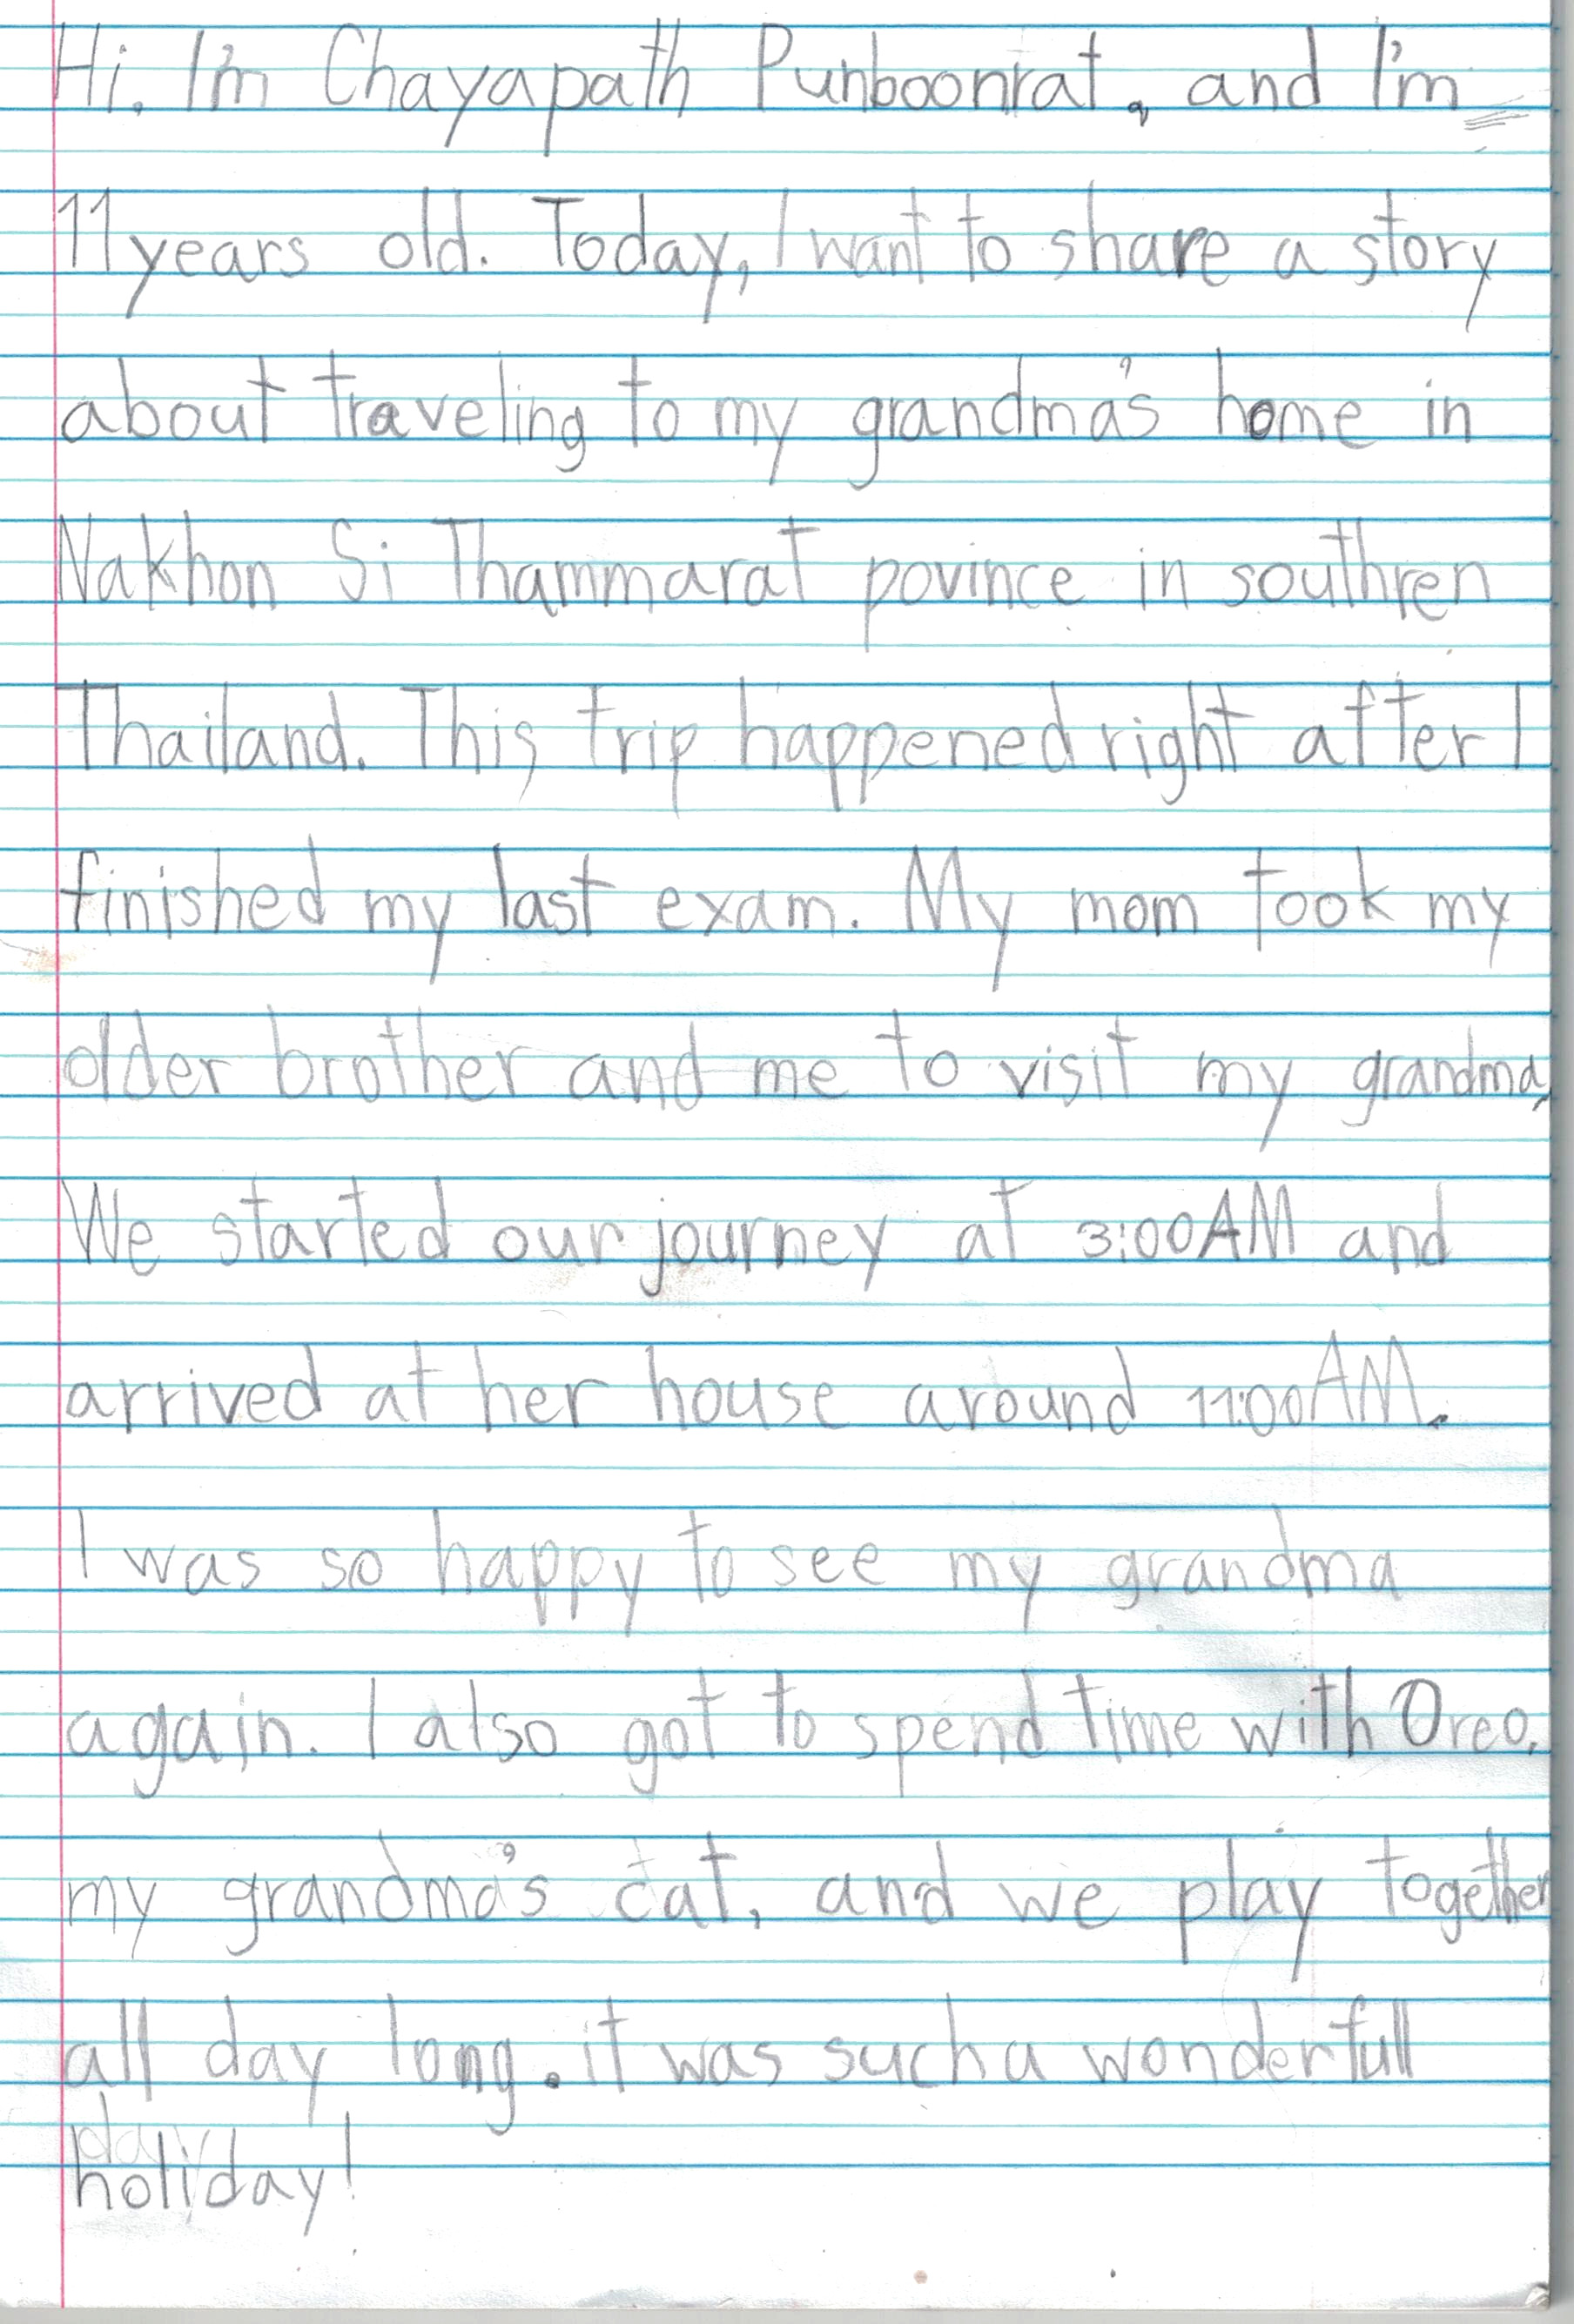 Hi. I'm Chayapath Punboonrat, and I'm
11 years old. Today, I want to share a story
about traveling to my grandma's home in
Nakhon Si Thammarat povince in southren
Thailand. This trip happened right after I
finished my last exam. My mom took my
older brother and me to visit my grandma,
We started our journey at 3:00AM and
arrived at her house around 11:00AM.
I was so happy to see my grandma
again. I also got to spend time with Oreo,
my grandma's cat, and we play together
all day long. it was such a wonderfull
holiday!